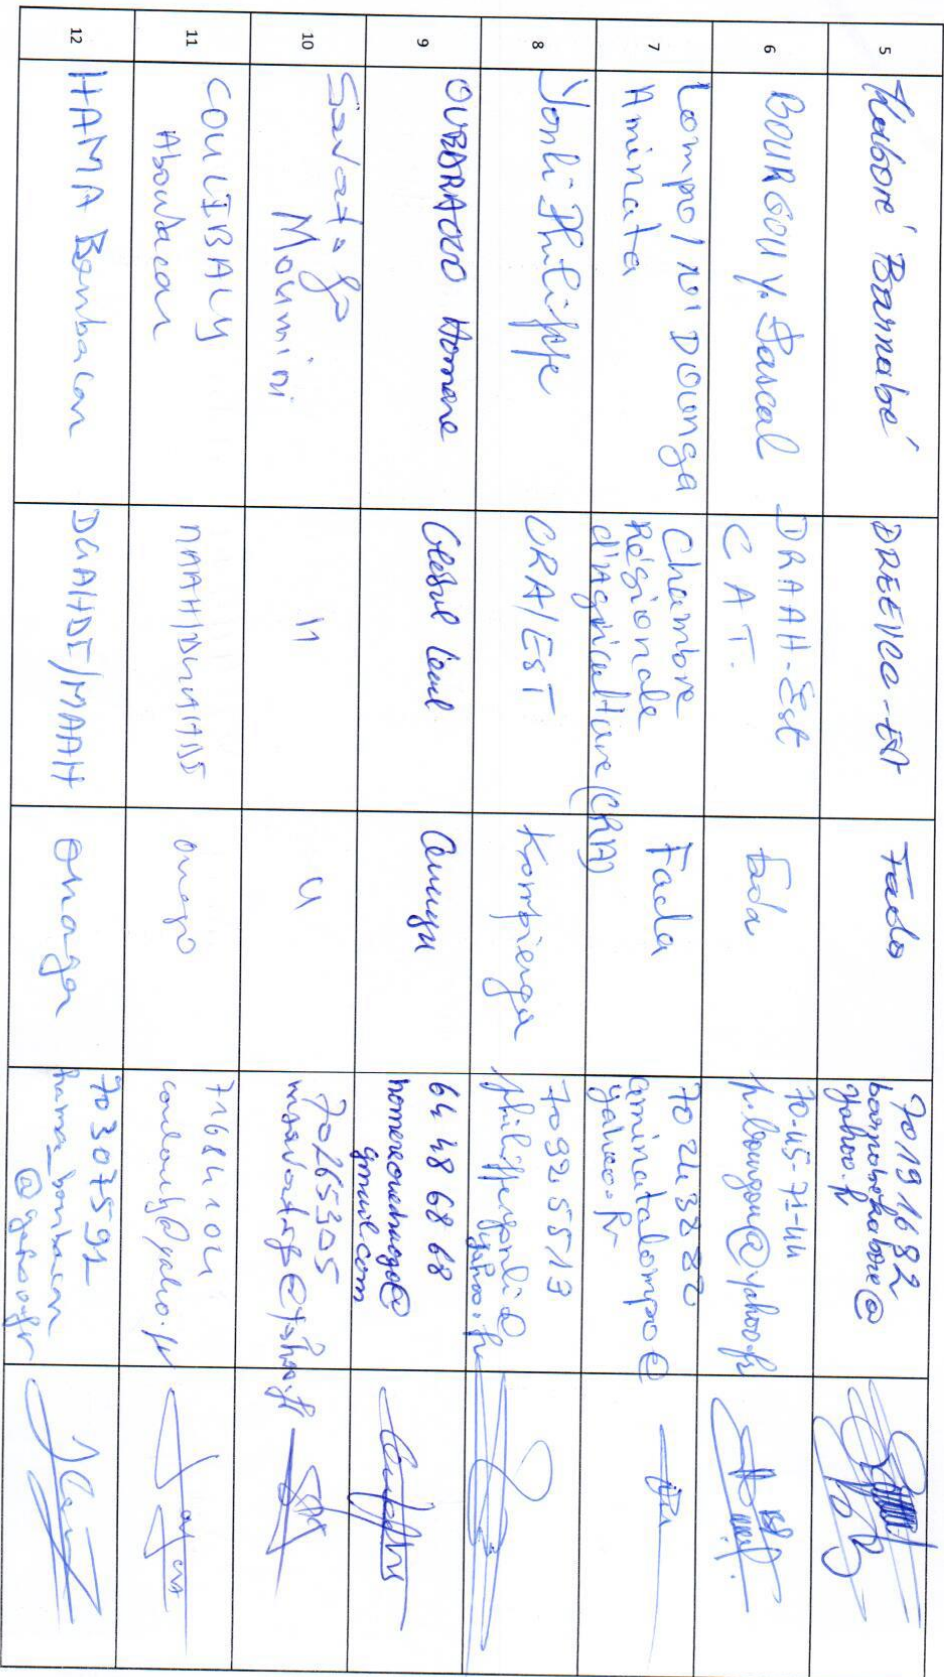 5
Kaboré Barnabé
DREEVCC-Est
Fada
70191682
barnabekabore@
yahoo.fr
6
BOURGOU Y. Pascal
DRAAH-Est
CAT.
Fada
70-45-71-44
p.bourgou@yahoo.fr
7
Lompo/ni Dounga
Aminata
Chambre
Régionale
d'Agriculture (CRA)
Fada
aminatalompo@
yahoo.fr
8
Yonli Philippe
CRA/EST
Kompienga
70925513
philippeyonli@
yahoo.fr
9
OUEDRAOGO Homere
64 48 68 68
homereouedraogo@
gmail.com
10
Savadogo
Moumini
"
"
70265305
11
COULIBALY
Aboubacar
MAAH/DGAHDI
Ouaga
71684104
12
HAMA Boubacar
DGAHDI/MAAH
Ouaga
70307591
hama_boubacar
@yahoo.fr